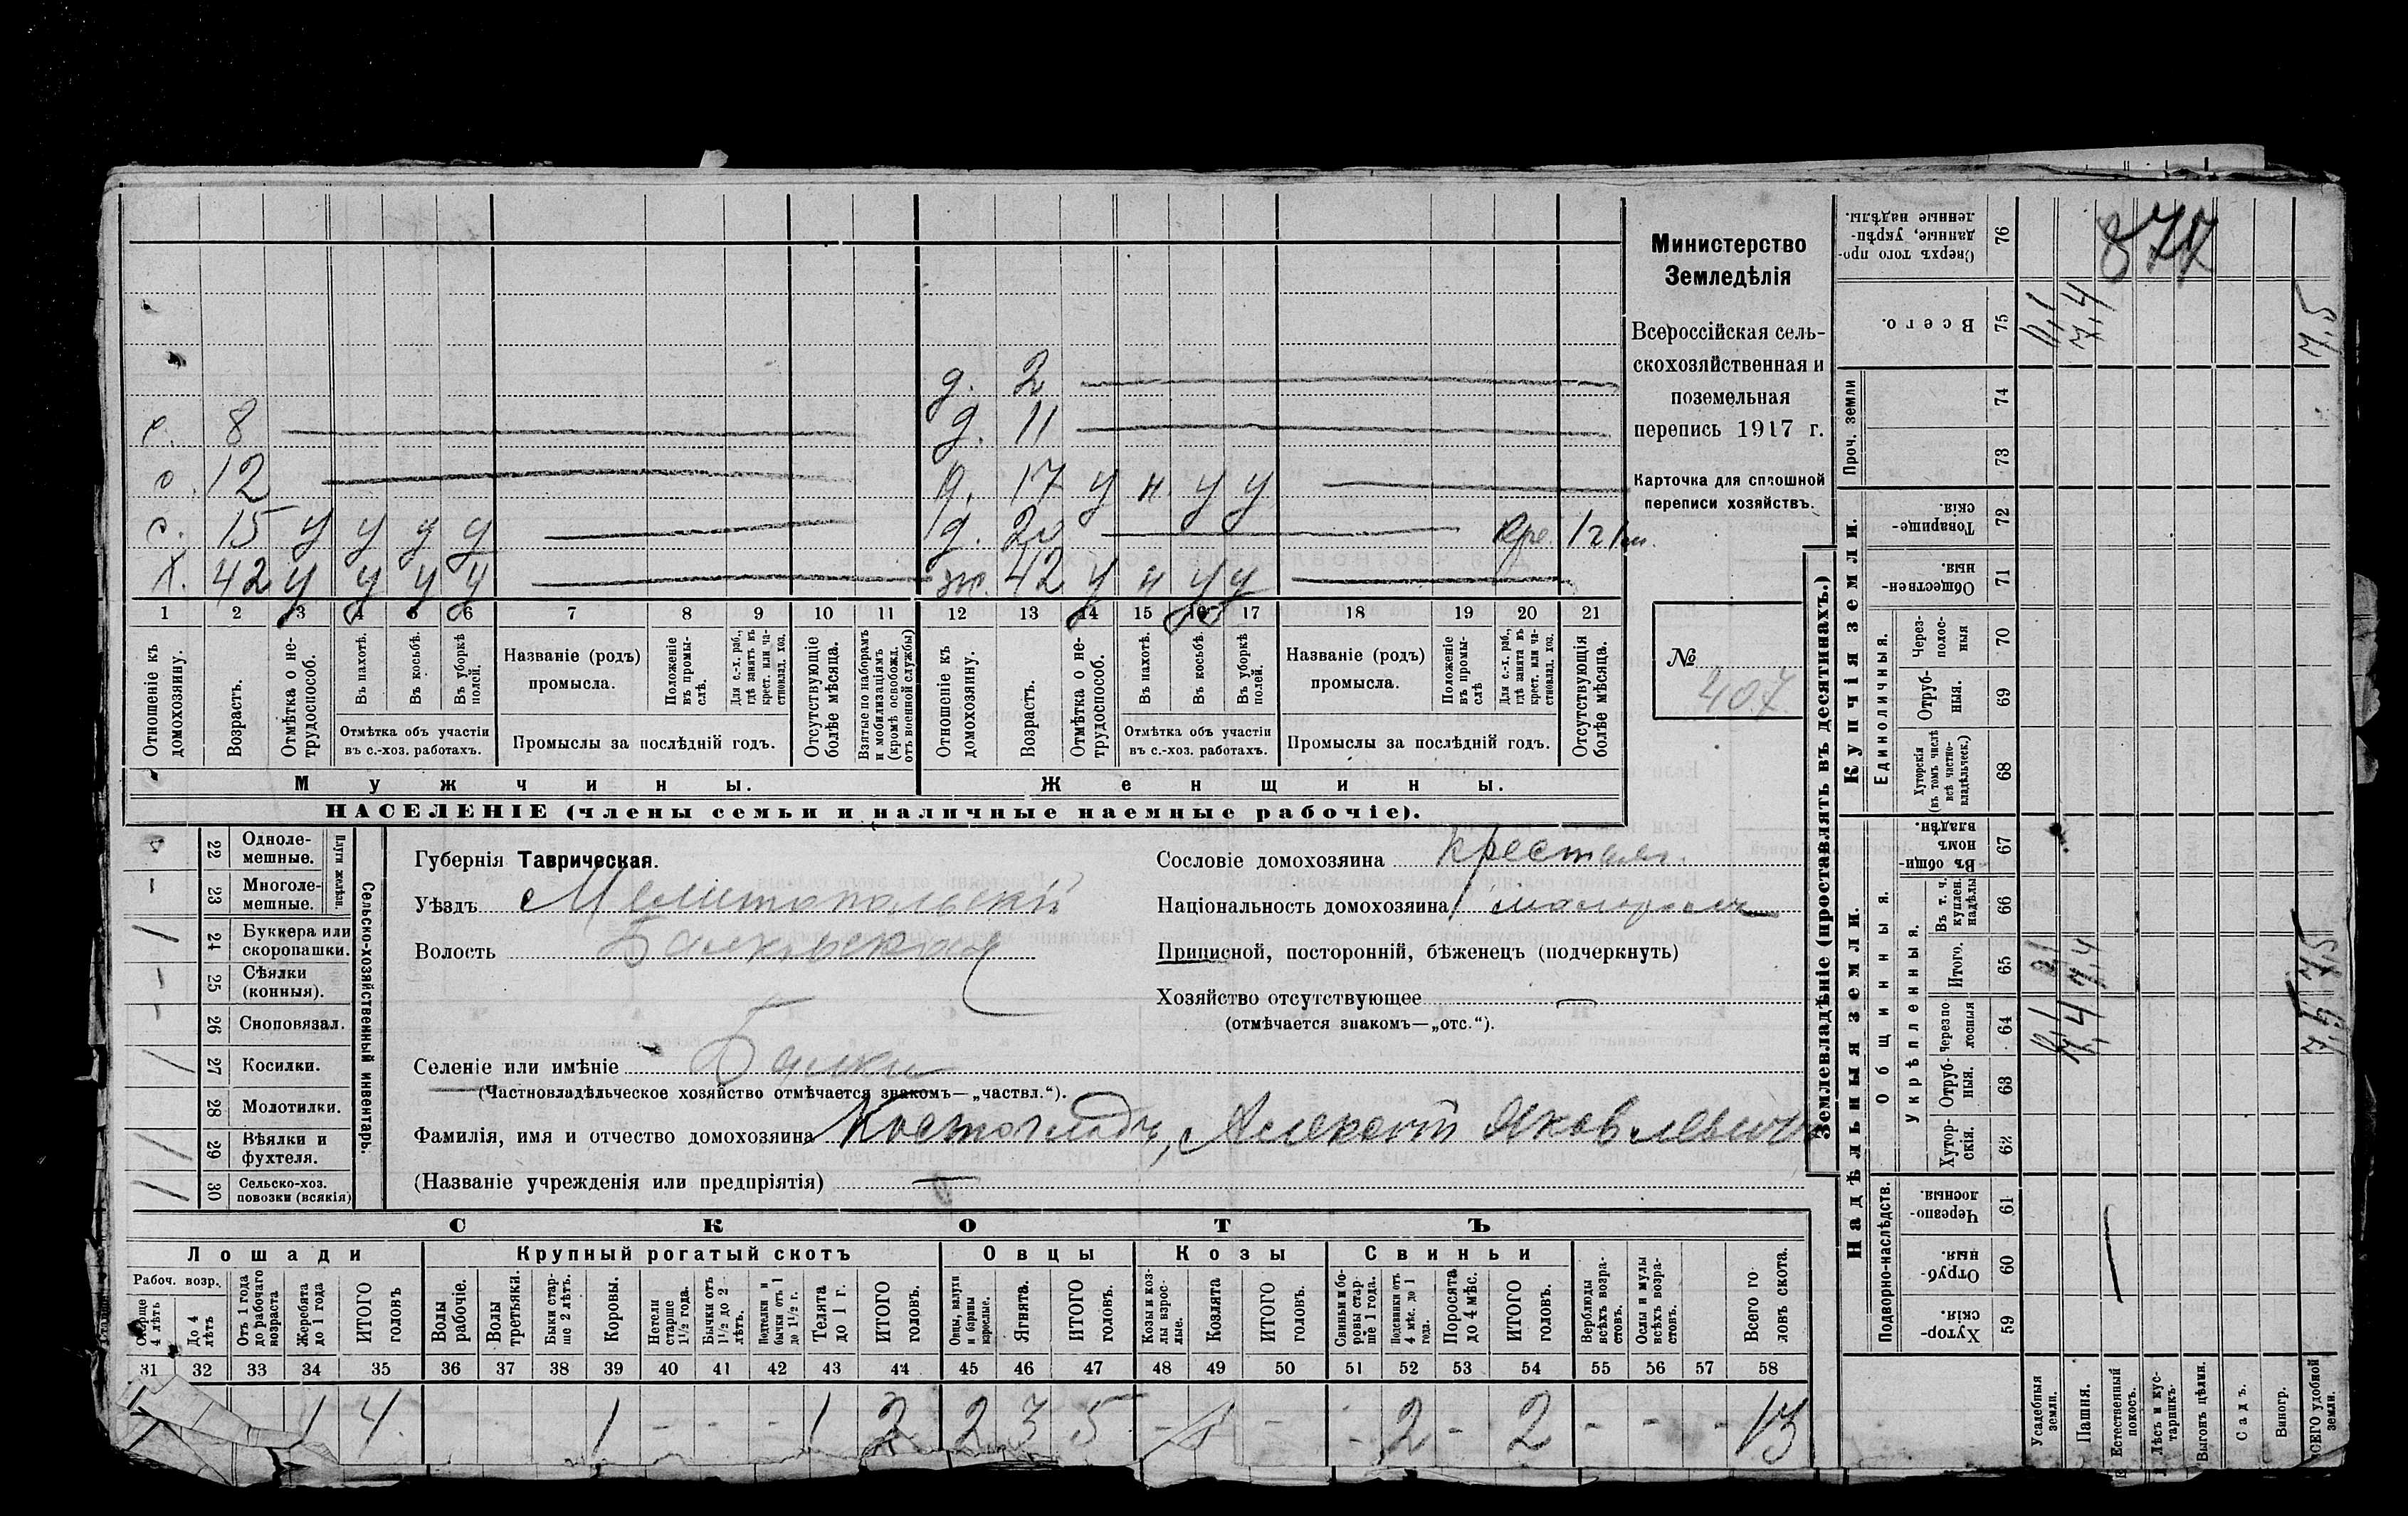 д. 2
с. 8 д. 11
с. 12 д. 17 у н. у у
с. 15 у у у у д. 20
Х. 42 у у у у ж. 42 у н у у
1 2 3 4 5 6 7 8 9 10 11 12 13 14 15 16 17 18 19 20 21
Отношеніе къ домохозяину.
Возрастъ.
Отмѣтка о не-
трудоспособ.
Въ пахотѣ.
Въ косьбѣ.
Въ уборкѣ полей.
Отмѣтка объ участіи
въ с.-хоз. работахъ.
Названіе (родъ)
промысла.
Положеніе
въ промы-
слѣ.
Для с.-х. раб.,
гдѣ занятъ въ
крест. или ча-
стновлад. хоз.
Промыслы за послѣдній годъ.
Отсутствующіе
болѣе мѣсяца.
Взятые по наборамъ
и мобилизаціямъ
(кромѣ освобожд.
отъ военной службы)
Отношеніе къ
домохозяину.
Возрастъ.
Отмѣтка о не-
трудоспособ.
Въ пахотѣ.
Въ косьбѣ.
Въ уборкѣ
полей.
Отмѣтка объ участіи
въ с.-хоз. работахъ.
Названіе (родъ)
промысла.
Положеніе
въ промы-
слѣ
Для с.-х. раб.,
гдѣ занята въ
крест. или ча-
стновлад. хоз.
Промыслы за послѣдній годъ.
Отсутствующія
болѣе мѣсяца.
Мужчины. Женщины.
НАСЕЛЕНІЕ (члены семьи и наличные наемные рабочіе).
Министерство
Земледѣлія
Всероссійская сель-
скохозяйственная и
поземельная
перепись 1917 г.
Карточка для сплошной
переписи хозяйствъ.
№
407.
22 Одноле-
мешные.
23 Многоле-
мешные.
Плуги желѣзн.
24 Буккера или
скоропашки.
25 Сѣялки
(конныя).
26 Сноповязал.
27 Косилки.
28 Молотилки.
29 Вѣялки и
фухтеля.
30 Сельско-хоз.
повозки (всякія)
Сельско-хозяйственный инвентарь.
Губернія Таврическая.
Уѣздъ Мелитопольскій
Волость Балковская
Селеніе или имѣніе Балки
(Частновладѣльческое хозяйство отмѣчается знакомъ—„частвл.“).
Фамилія, имя и отчество домохозяина Костогладъ, Алексѣй Яковлевичъ
(Названіе учрежденія или предпріятія) —
Сословіе домохозяина крестьян.
Національность домохозяина малороссъ
Приписной, посторонній, бѣженецъ (подчеркнуть)
Хозяйство отсутствующее —
(отмѣчается знакомъ—„отс.“).
СКОТЪ
Лошади Крупный рогатый скотъ Овцы Козы Свиньи
Рабоч. возр.
Старше
4 лѣтъ
До 4
лѣтъ
Отъ 1 года
до рабочаго
возраста
Жеребята
до 1 года
ИТОГО
головъ
Волы
рабочіе.
Волы
третьяки.
Быки стар-
ше 2 лѣтъ.
Коровы.
Нетели
старше
1½ года.
Бычки отъ
1½ до 2
лѣтъ.
Подтелки и
бычки отъ 1
до 1½ г.
Телята
до 1 г.
ИТОГО
головъ.
Овцы, валухи
и бараны
взрослые.
Ягнята.
ИТОГО
головъ.
Козы и коз-
лы взрос-
лые.
Козлята
ИТОГО
головъ.
Свиньи и бо-
ровы стар
ше 1 года.
Подсвинки отъ
4 мѣс. до 1
года.
Поросята
до 4 мѣс.
ИТОГО
головъ.
Верблюды
всѣхъ возра-
стовъ.
Ослы и мулы
всѣхъ возра-
стовъ.
Всего го
ловъ скота.
31 32 33 34 35 36 37 38 39 40 41 42 43 44 45 46 47 48 49 50 51 52 53 54 55 56 57 58
1 4. 1 - - - 1 2 2 3 5 - - - 2 - 2 - - - 13
Землевладѣніе (проставлять въ десятинахъ.)
Надѣльныя земли. Купчія земли. Проч. земли
Подворно-наслѣдств.
Общинныя.
Укрѣпленныя.
Единоличныя.
76 Сверхъ того про-
данные, укрѣп-
ленные надѣлы.
877
75 Всего. 0,1 7,4 7,5
74
73
72 Товарище-
скія.
71 Обществен-
ныя.
70 Через-
полос-
ныя
69 Отруб-
ныя.
68 Хуторскія
(въ томъ числѣ
всѣ частно-
владѣльческ.)
67 Въ общин-
номъ
владѣн.
66 Въ т. ч.
куплен.
надѣлы
65 Итого. 0,1 7,4 7,5
64 Черезпо
лосныя 0,1 7,4 7,5
63 Отруб-
ныя.
62 Хутор-
скія.
61 Черезпо-
лосныя.
60 Отруб-
ныя.
59 Хутор-
скія.
Усадебныя
земли.
Пашня.
Естественный
покосъ.
Лѣсъ и кус-
тарникъ.
Выгонъ цѣлин.
Садъ.
Виногр.
ВСЕГО удобной
земли.